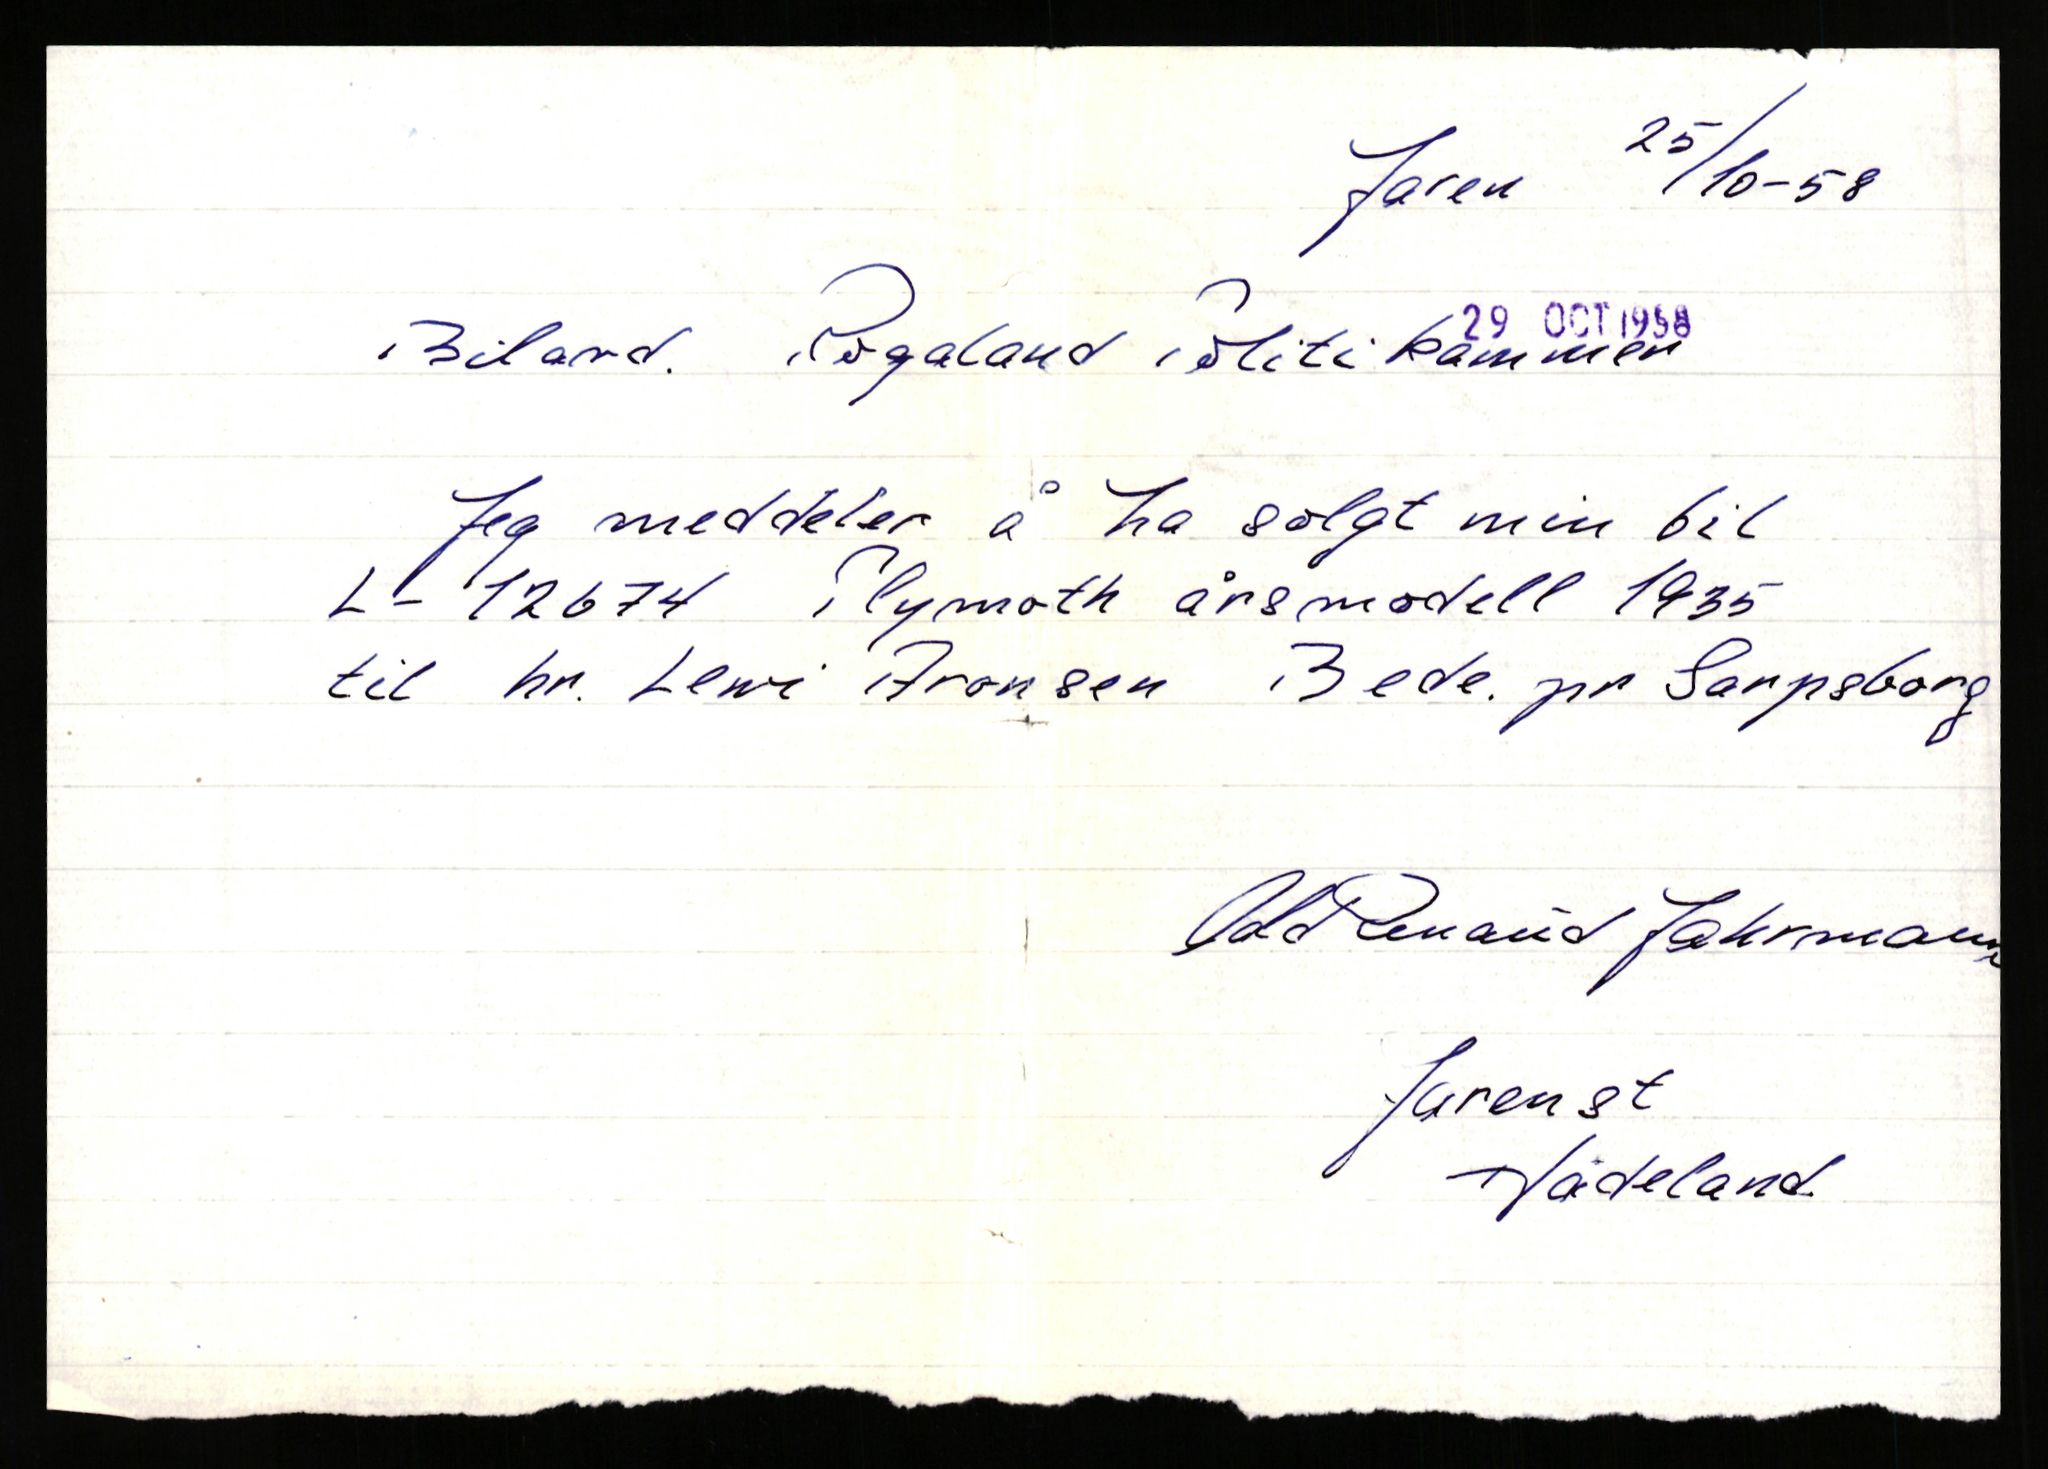 Jaren 25/10-58
29 OCT 1958
Bilavd. Rogaland Politikammer
Jeg meddeler å ha solgt min bil
L-12674 Plymoth årsmodell 1935
til hr. Lewi Aronsen Bede. pr Sarpsborg
Odd Renaud Jahrmann
Jaren st
Hadeland